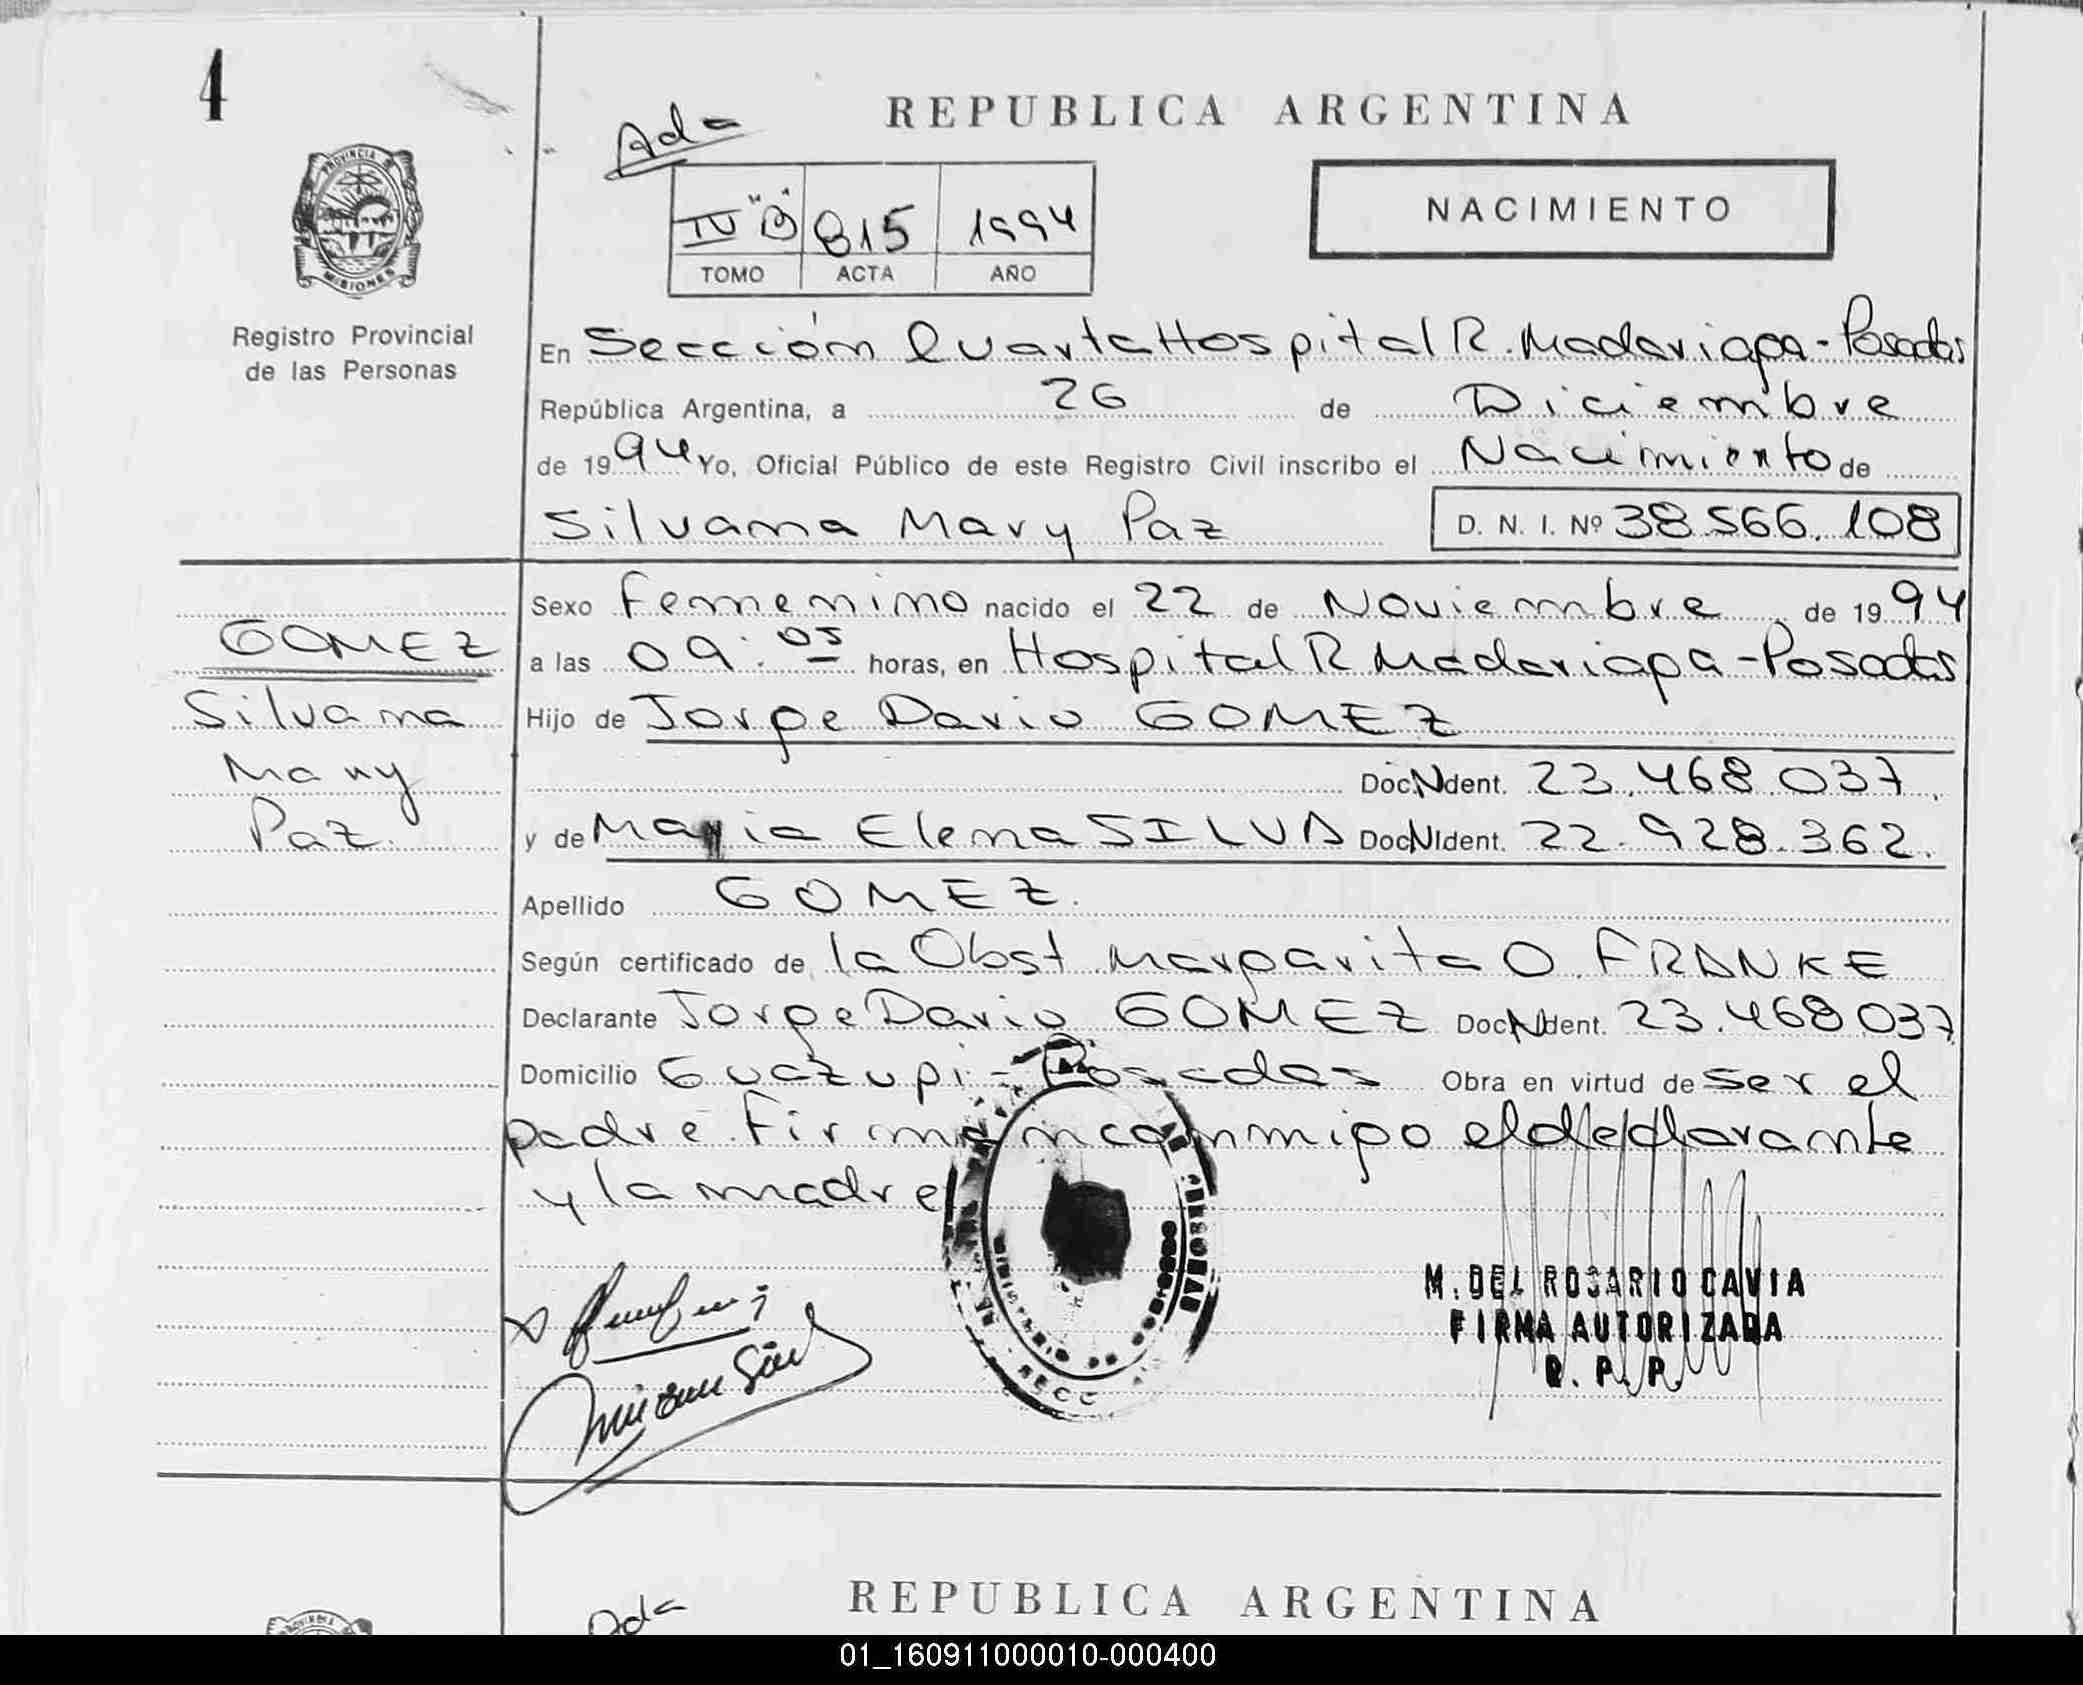 4
REPUBLICA ARGENTINA
Ada
NACIMIENTO
IV "B" 815 1994
TOMO ACTA AÑO
PROVINCIA DE
MISIONES
Registro Provincial
de las Personas
En Sección Cuarta Hospital R. Madariaga - Posadas
República Argentina, a 26 de Diciembre
de 1994 Yo, Oficial Público de este Registro Civil inscribo el Nacimiento de
Silvana Mary Paz D. N. I. Nº 38.566.108
Sexo femenino nacido el 22 de Noviembre de 1994
GOMEZ
a las 09:05 horas, en Hospital R Madariaga - Posadas
Silvana
Hijo de Jorge Dario GOMEZ
Mary
Doc. N Ident. 23.468.037.
Paz.
y de Maria Elena SILVA Doc N Ident. 22.928.362.
Apellido GOMEZ.
Según certificado de la Obst Margarita O. FRANKE
Declarante Jorge Dario GOMEZ Doc N Ident. 23.468.037
Domicilio Guazupi - Posadas Obra en virtud de ser el
padre. Firma conmigo el declarante
y la madre
M. DEL ROSARIO CAVIA
FIRMA AUTORIZADA
R. P. P.
REPUBLICA ARGENTINA
Ada
01_160911000010-000400